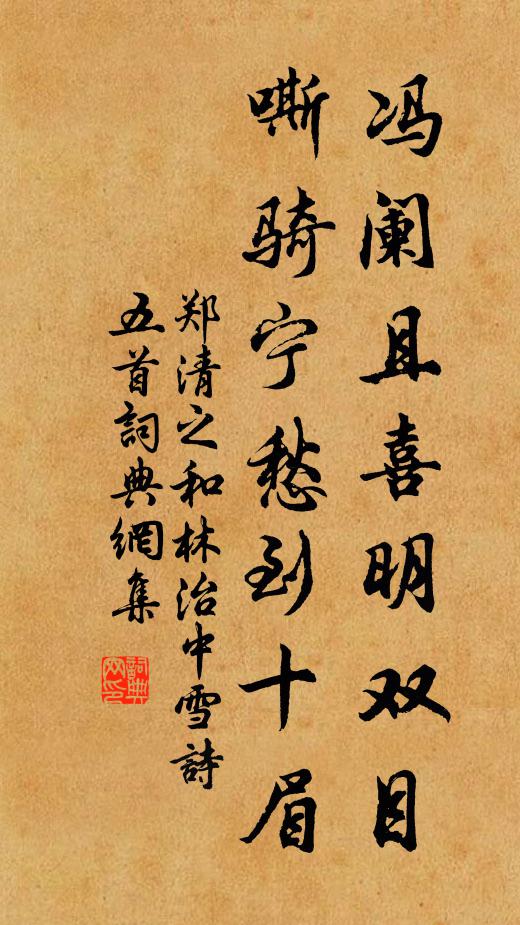 冯阑且喜明双目
嘶骑宁愁到十眉
郑清之和林治中雪詩
五首詞典網集
詞典網印